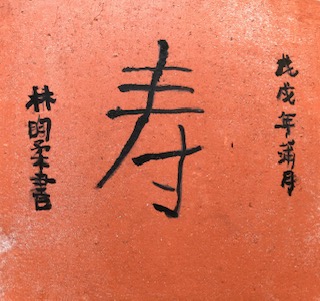 戊戌年蒲月
寿
林昀柔書